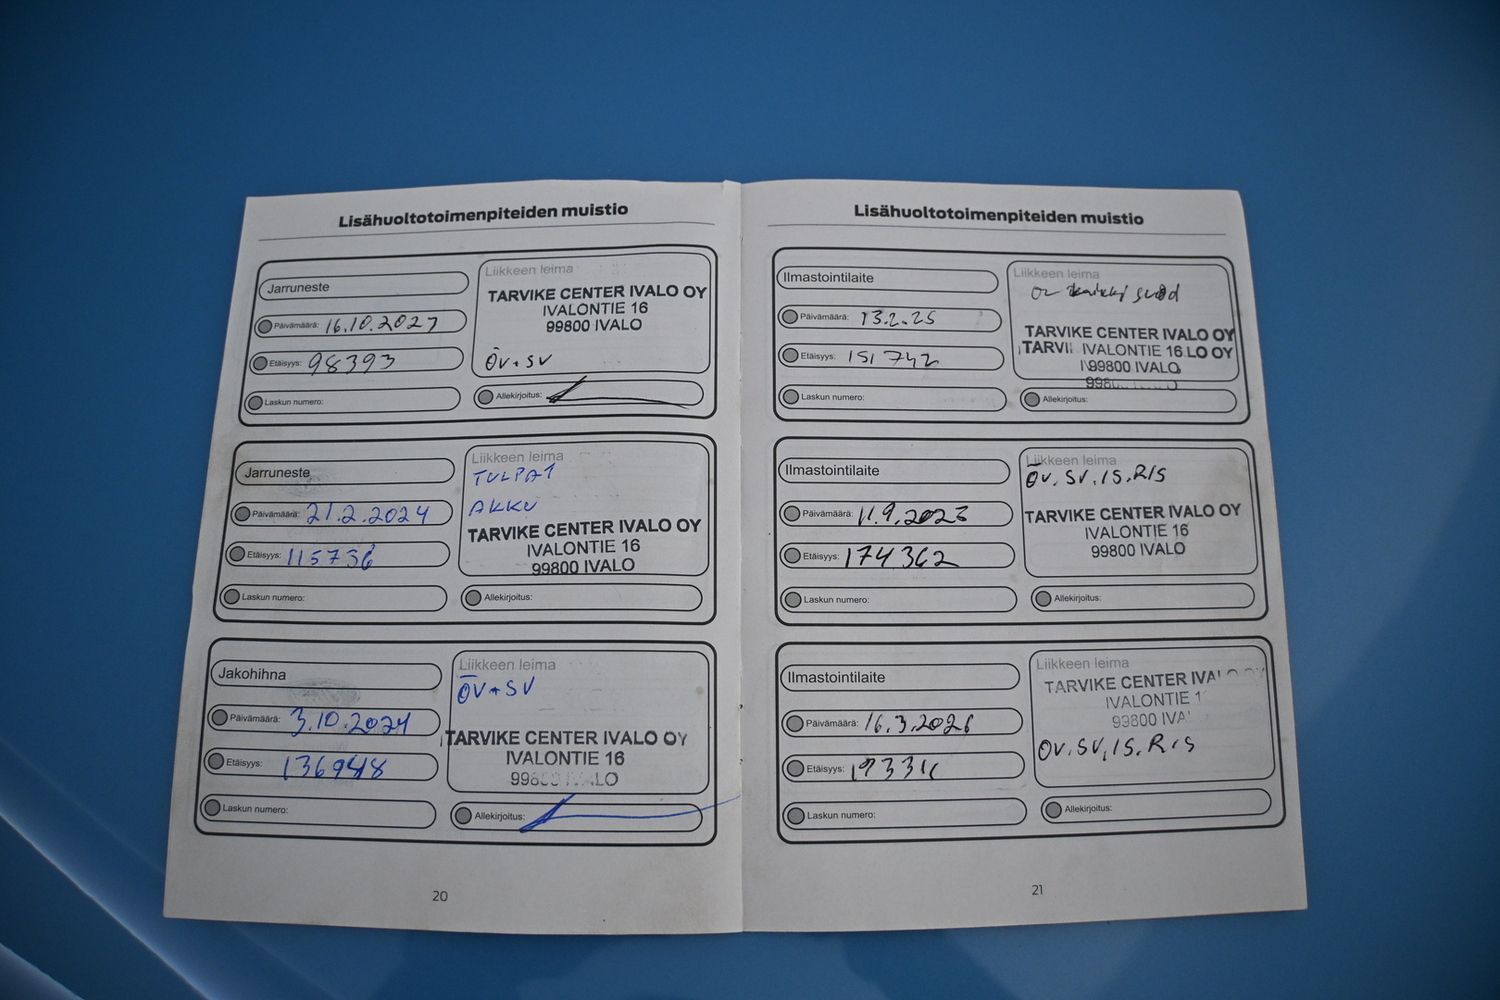 Lisähuoltotoimenpiteiden muistio
Jarruneste
Päivämäärä: 16.10.2023
Etäisyys: 98393
Laskun numero:
Liikkeen leima
TARVIKE CENTER IVALO OY
IVALONTIE 16
99800 IVALO
ÖV + SV
Allekirjoitus:
Jarruneste
Päivämäärä: 21.2.2024
Etäisyys: 115736
Laskun numero:
Liikkeen leima
TULPAT
AKKU
TARVIKE CENTER IVALO OY
IVALONTIE 16
99800 IVALO
Allekirjoitus:
Jakohihna
Päivämäärä: 3.10.2024
Etäisyys: 136948
Laskun numero:
Liikkeen leima
ÖV + SV
TARVIKE CENTER IVALO OY
IVALONTIE 16
Allekirjoitus:
20
Lisähuoltotoimenpiteiden muistio
Ilmastointilaite
Päivämäärä: 13.2.25
Etäisyys: 151742
Laskun numero:
Liikkeen leima
TARVIKE CENTER IVALO OY
IVALONTIE 16
99800 IVALO
Allekirjoitus:
Ilmastointilaite
Päivämäärä:
Etäisyys: 174362
Laskun numero:
Liikkeen leima
ÖV. SV. IS. RIS
TARVIKE CENTER IVALO OY
IVALONTIE 16
99800 IVALO
Allekirjoitus:
Ilmastointilaite
Päivämäärä: 16.3.2026
Etäisyys:
Laskun numero:
Liikkeen leima
TARVIKE CENTER
IVALONTIE
99800
ÖV. SV, IS. RIS
Allekirjoitus:
21